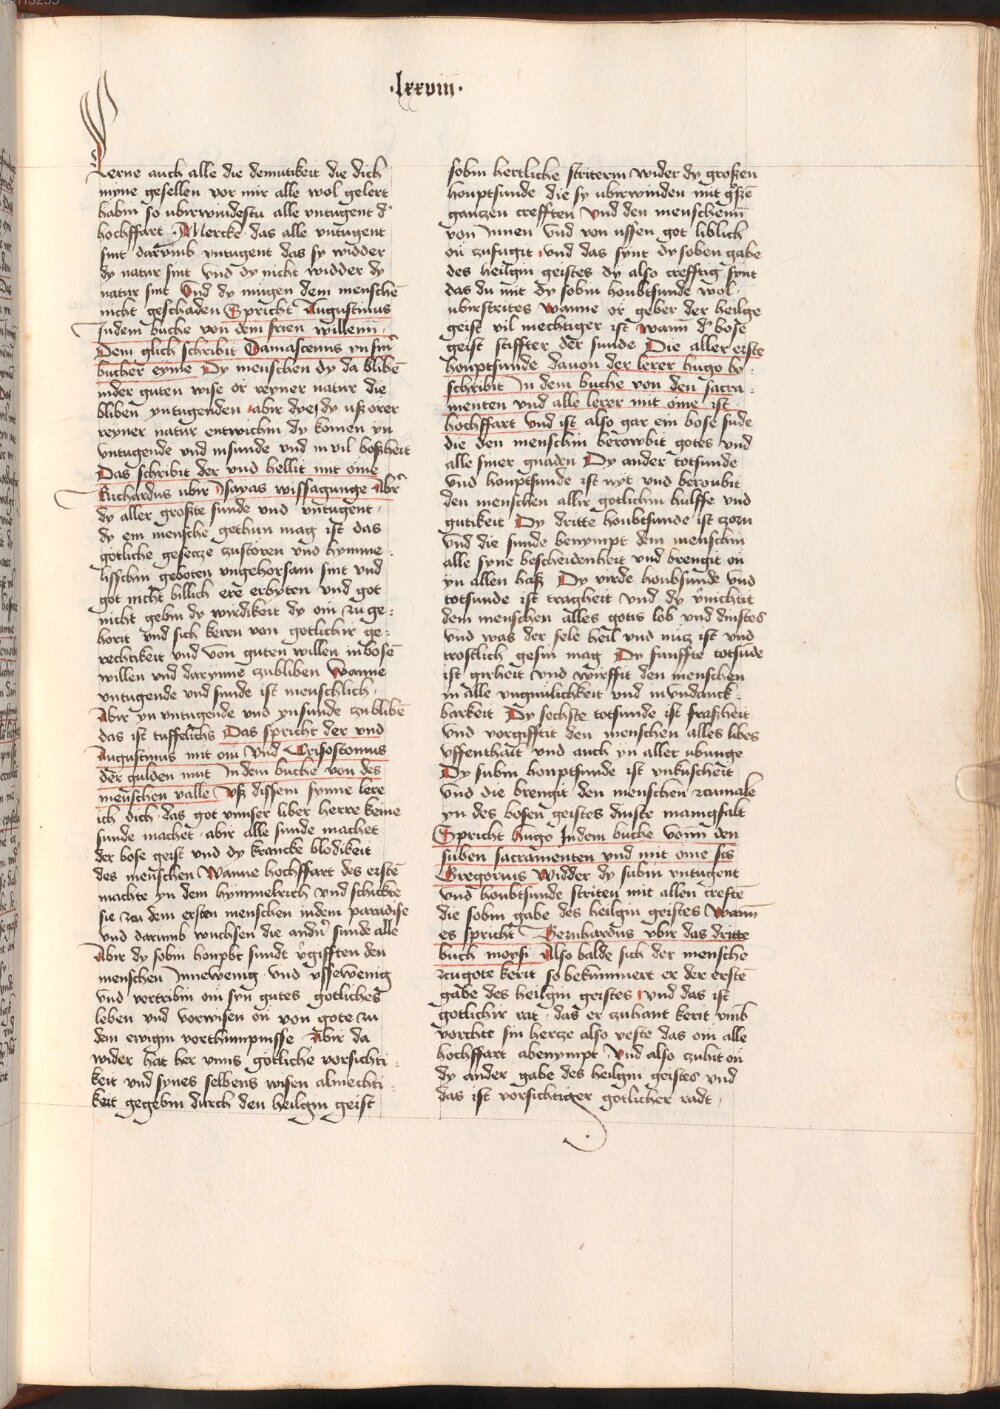 ·lxxviii·
Lerne auch alle die demutikeit die dich
myne gesellen vor mir alle wol gelert
habin so ubirwindestu alle untugent d'
hochffart Mercke das alle untugent
sint darumb untugent das sy widder
dy natur sint und dy nicht widder dy
natur sint Und dy mugen dem mensche̅
nicht geschaden Spricht Augustinus
Indem buche von dem frien willenn̅ ·
Dem glich schribit Damascenus yn sin'
bucher eyme Dy menschen dy da blibe̅
inder guten wise or reyner natur die
bliben yntugenden abir dye dy uß orer
reyner natur entwichin dy komen yn
untugende und insunde und in vil boßheit
Das schribit der und hellit mit ome
Richardus ubir Isayas wissagunge Abir
dy aller großte sunde und untugent ·
dy ein mensche gethun mag ist das
gotliche gesecze zustoren und hymme-
lisschin geboten ungehorsam sint und
got nicht billich ere erbyten und got
nicht gebin dy wirdikeit dy om zu ge-
horit und sich keren von gotlichir ge-
rechtikeit und von guten willen inbose̅
willen und darynne czubliben Wanne
untugende und sunde ist menschlich ·
Abir yn untugende und ynsunde czublibe̅
das ist tuffelichs Das spricht der und
Augustinus mit om Und Crisostomus
der gulden mut In dem buche von des
menschen valle Uß dissem synne lere
ich dich das got unser liber herre keine
sunde machet abir alle sunde machet
der bose geist und dy krancke blodikeit
des menschen Wanne hochffart des erste̅
machte yn dem hymmelrich und schickte
sie zu dem ersten menschen indem paradise
und darumb wuchsen die and'n sunde alle
Abir dy sobin houpbt sundt v'gifften den
menschen Innewenig und ussewenig
und vortribin om syn gutes gotliches
leben und vorwisen on von gote zu
dem ewigin vorthumpnisse Abir da
wider hat her uns gotliche vorsichti-
keit und synes selbens wisen almechti-
keit gegebin durch den heilgin geist
sobin hertliche striterin wider dy großen
houptsunde die sy ubirwinden mit
ganczen crefften Und den menschenn̅
von Innen und von ussen got liblich
on zufugit und das synt dy soben gabe
des heilgin geistes dy also crefftig synt
das du mit dy sobin houbtsunde wol
ubirstrites Wanne or geber der heilge
geist vil mechtiger ist Wann d' bose
geist stiffter der sunde Die aller erste
houptsunde davon der lerer hugo be-
schribit In dem buche von den sacra-
menten und alle lerer mit ome ist
hochffart und ist also gar ein bose sude
die den menschin berowbit gotes und
alle siner gnaden Dy ander totsunde
und houptsunde ist nyt und beroubit
den menschen allir gotlichin hulffe und
gutikeit Dy dritte houbtsunde ist czorn
und die sunde benympt dem menschin
alle syne bescheidenheit und brengit on
yn allen haß Dy virde houbsunde und
totsunde ist tragheit und dy v'nichtit
dem menschen alles gotis lob und dinstes
und was der sele heil und nucz ist und
trostlich gesin mag Dy funffte totsu̅de
ist girheit und wirffit den menschen
in alle ungnulichkeit und in undanck-
barkeit Dy sechste totsunde ist fraßheit
und vorgifftit den menschen alles libes
uffenthalt und auch yn aller ubunge
Dy subin houptsunde ist unkuscheit
und die brengit den menschen zcumale
yn des bosen geistes dinste manigfalt
Spricht Hugo Indem buche vonn den
suben sacramenten und mit ome scs
Gregorius Widder dy subin untugent
und houbtsunde striten mit allen crefte̅
die sobin gabe des heilgin geistes Wann̅
es spricht Bernhardus ubir das dritte
buch moysi Also balde sich der mensche
zcugote kerit so bekummert er der erste̅
gabe des heilgin geistes und das ist
gotlichir rat das er zuhant kerit umb
vorchte sin hercze also veste das om alle
hochffart abenympt Und also czubit on
dy ander gabe des heilgin geistes und
das ist vorsichtiger gotlicher radt ·